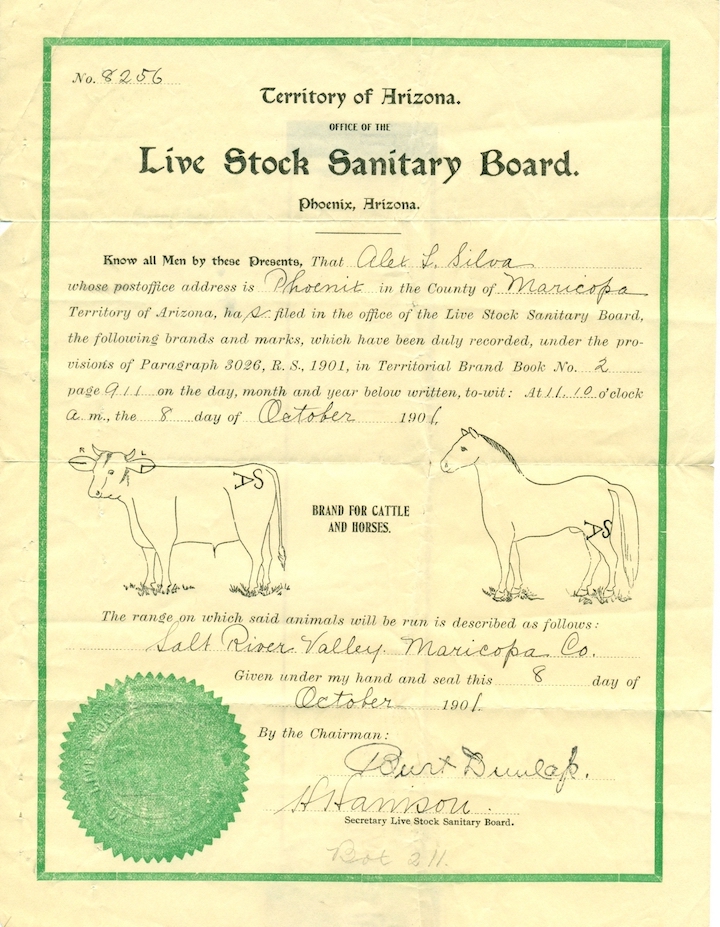 No. 8256
Territory of Arizona.
OFFICE OF THE
Live Stock Sanitary Board.
Phoenix, Arizona.
Know all Men by these Presents, That Alex L. Silva
whose postoffice address is Phoenix in the County of Maricopa
Territory of Arizona, has filed in the office of the Live Stock Sanitary Board,
the following brands and marks, which have been duly recorded, under the pro-
visions of Paragraph 3026, R. S., 1901, in Territorial Brand Book No. 2
page 911 on the day, month and year below written, to-wit: At 11.10 o'clock
a. m., the 8 day of October 1901.
R L
AS
BRAND FOR CATTLE
AND HORSES.
AS
The range on which said animals will be run is described as follows:
Salt River Valley. Maricopa Co.
Given under my hand and seal this 8 day of
October 1901.
By the Chairman:
Burt Dunlap.
H Harrison.
Secretary Live Stock Sanitary Board.
Box 211.